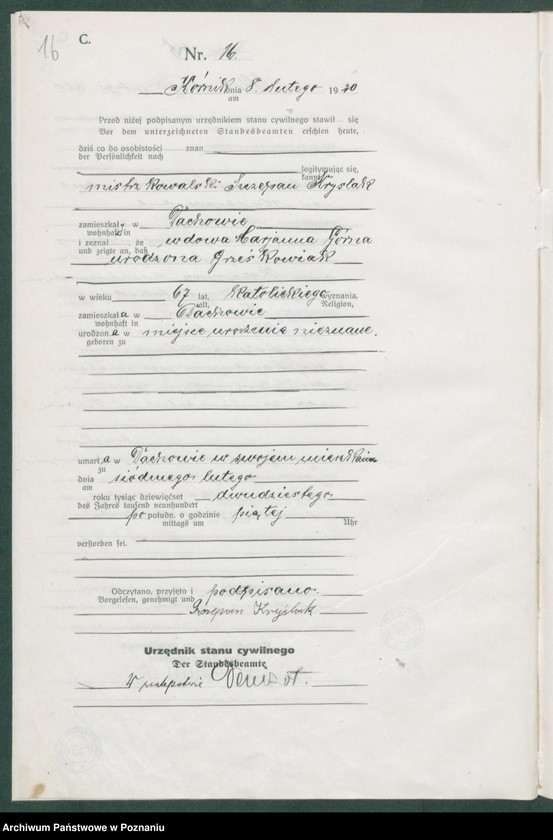 16
C.
Nr. 16.
Kórnik dnia 8. lutego 1920
am
Przed niżej podpisanym urzędnikiem stanu cywilnego stawił się
Vor dem unterzeichneten Standesbeamten erschien heute,
dziś co do osobistości znan
der Persönlichkeit nach
legitymując się,
kannt
mistrz kowalski Szczepan Kryślak
zamieszkał y w Dachowie
wohnhaft in
i zeznał, że wdowa Marjanna Górna
und zeigte an, daß
urodzona Grześkowiak
w wieku 67 lat, katolickiego Wyznania,
alt, Religion,
zamieszkał a w Dachowie
wohnhaft in
urodzon a w miejsce urodzenia nieznane.
geboren zu
umarł a w Dachowie w swojem mieszkaniu
zu
dnia siódmego lutego
am
roku tysiąc dziewięćset dwudziestego
des Jahres tausend neunhundert
po połudn. o godzinie piątej
mittags um Uhr
verstorben sei.
Odczytano, przyjęto i podpisano.
Vorgelesen, genehmigt und
Szczepan Kryślak
Urzędnik stanu cywilnego
Der Standesbeamte
W zastępstwie
Archiwum Państwowe w Poznaniu